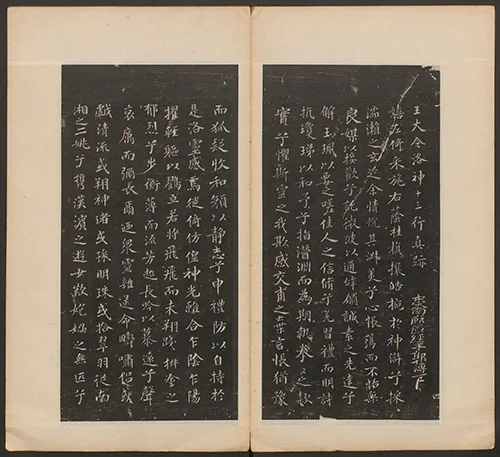 王大令洛神十三行真跡
嬉左倚采旄右蔭桂旗攘皓捥於神滸兮採
湍瀨之玄芝余情悅其淑美兮心振蕩而不怡無
良媒以接歡兮託微波以通辭願誠素之先達兮
解玉珮以要之嗟佳人之信脩兮羌習禮而明詩
抗瓊珶以和予兮指潛淵而為期執拳之款
實兮懼斯靈之我欺感交甫之棄言悵猶豫
而狐疑收和顏以靜志兮申禮防以自持於
是洛靈感焉徙倚仿偟神光離合乍陰乍陽
擢輕軀以鶴立若將飛而未翔踐椒塗之
郁烈兮步衡薄而流芳超長吟以慕遠兮聲
哀厲而彌長爾迺眾靈雜遝命疇嘯侶或
戲清流或翔神渚或採明珠或拾翠羽從南
湘之二姚兮攜漢濱之遊女歎媧之無匹兮